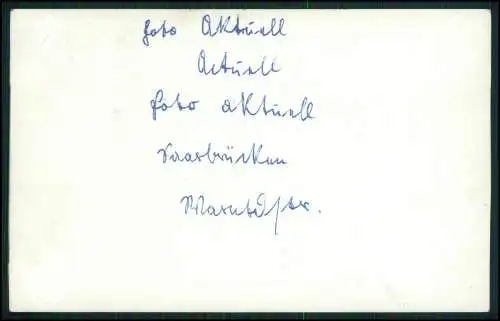 foto Aktuell
Actuell
foto aktuell
Saarbrücken